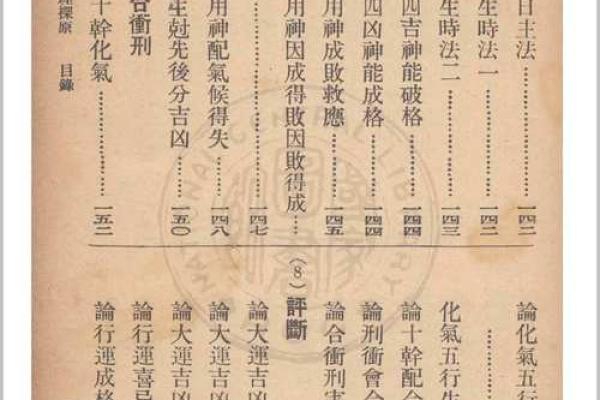 日主法………一四二
生時法一………一四二
生時法二………一四三
四吉神能破格………一四四
四凶神能成格………一四四
用神成敗救應………一四五
用神因成得敗因敗得成……
………一四七
用神配氣候得失……一四八
生尅先後分吉凶……一五〇
合衝刑
十幹化氣………一五二
論化氣五行
………
化氣五行生
論十幹配合
論刑衝會合
論合衝刑害
(8)評斷
論大運吉凶
論大運吉凶
論大運吉凶
論行運喜忌
論行運成格
探原 目錄
CENTRAL LIBRARY